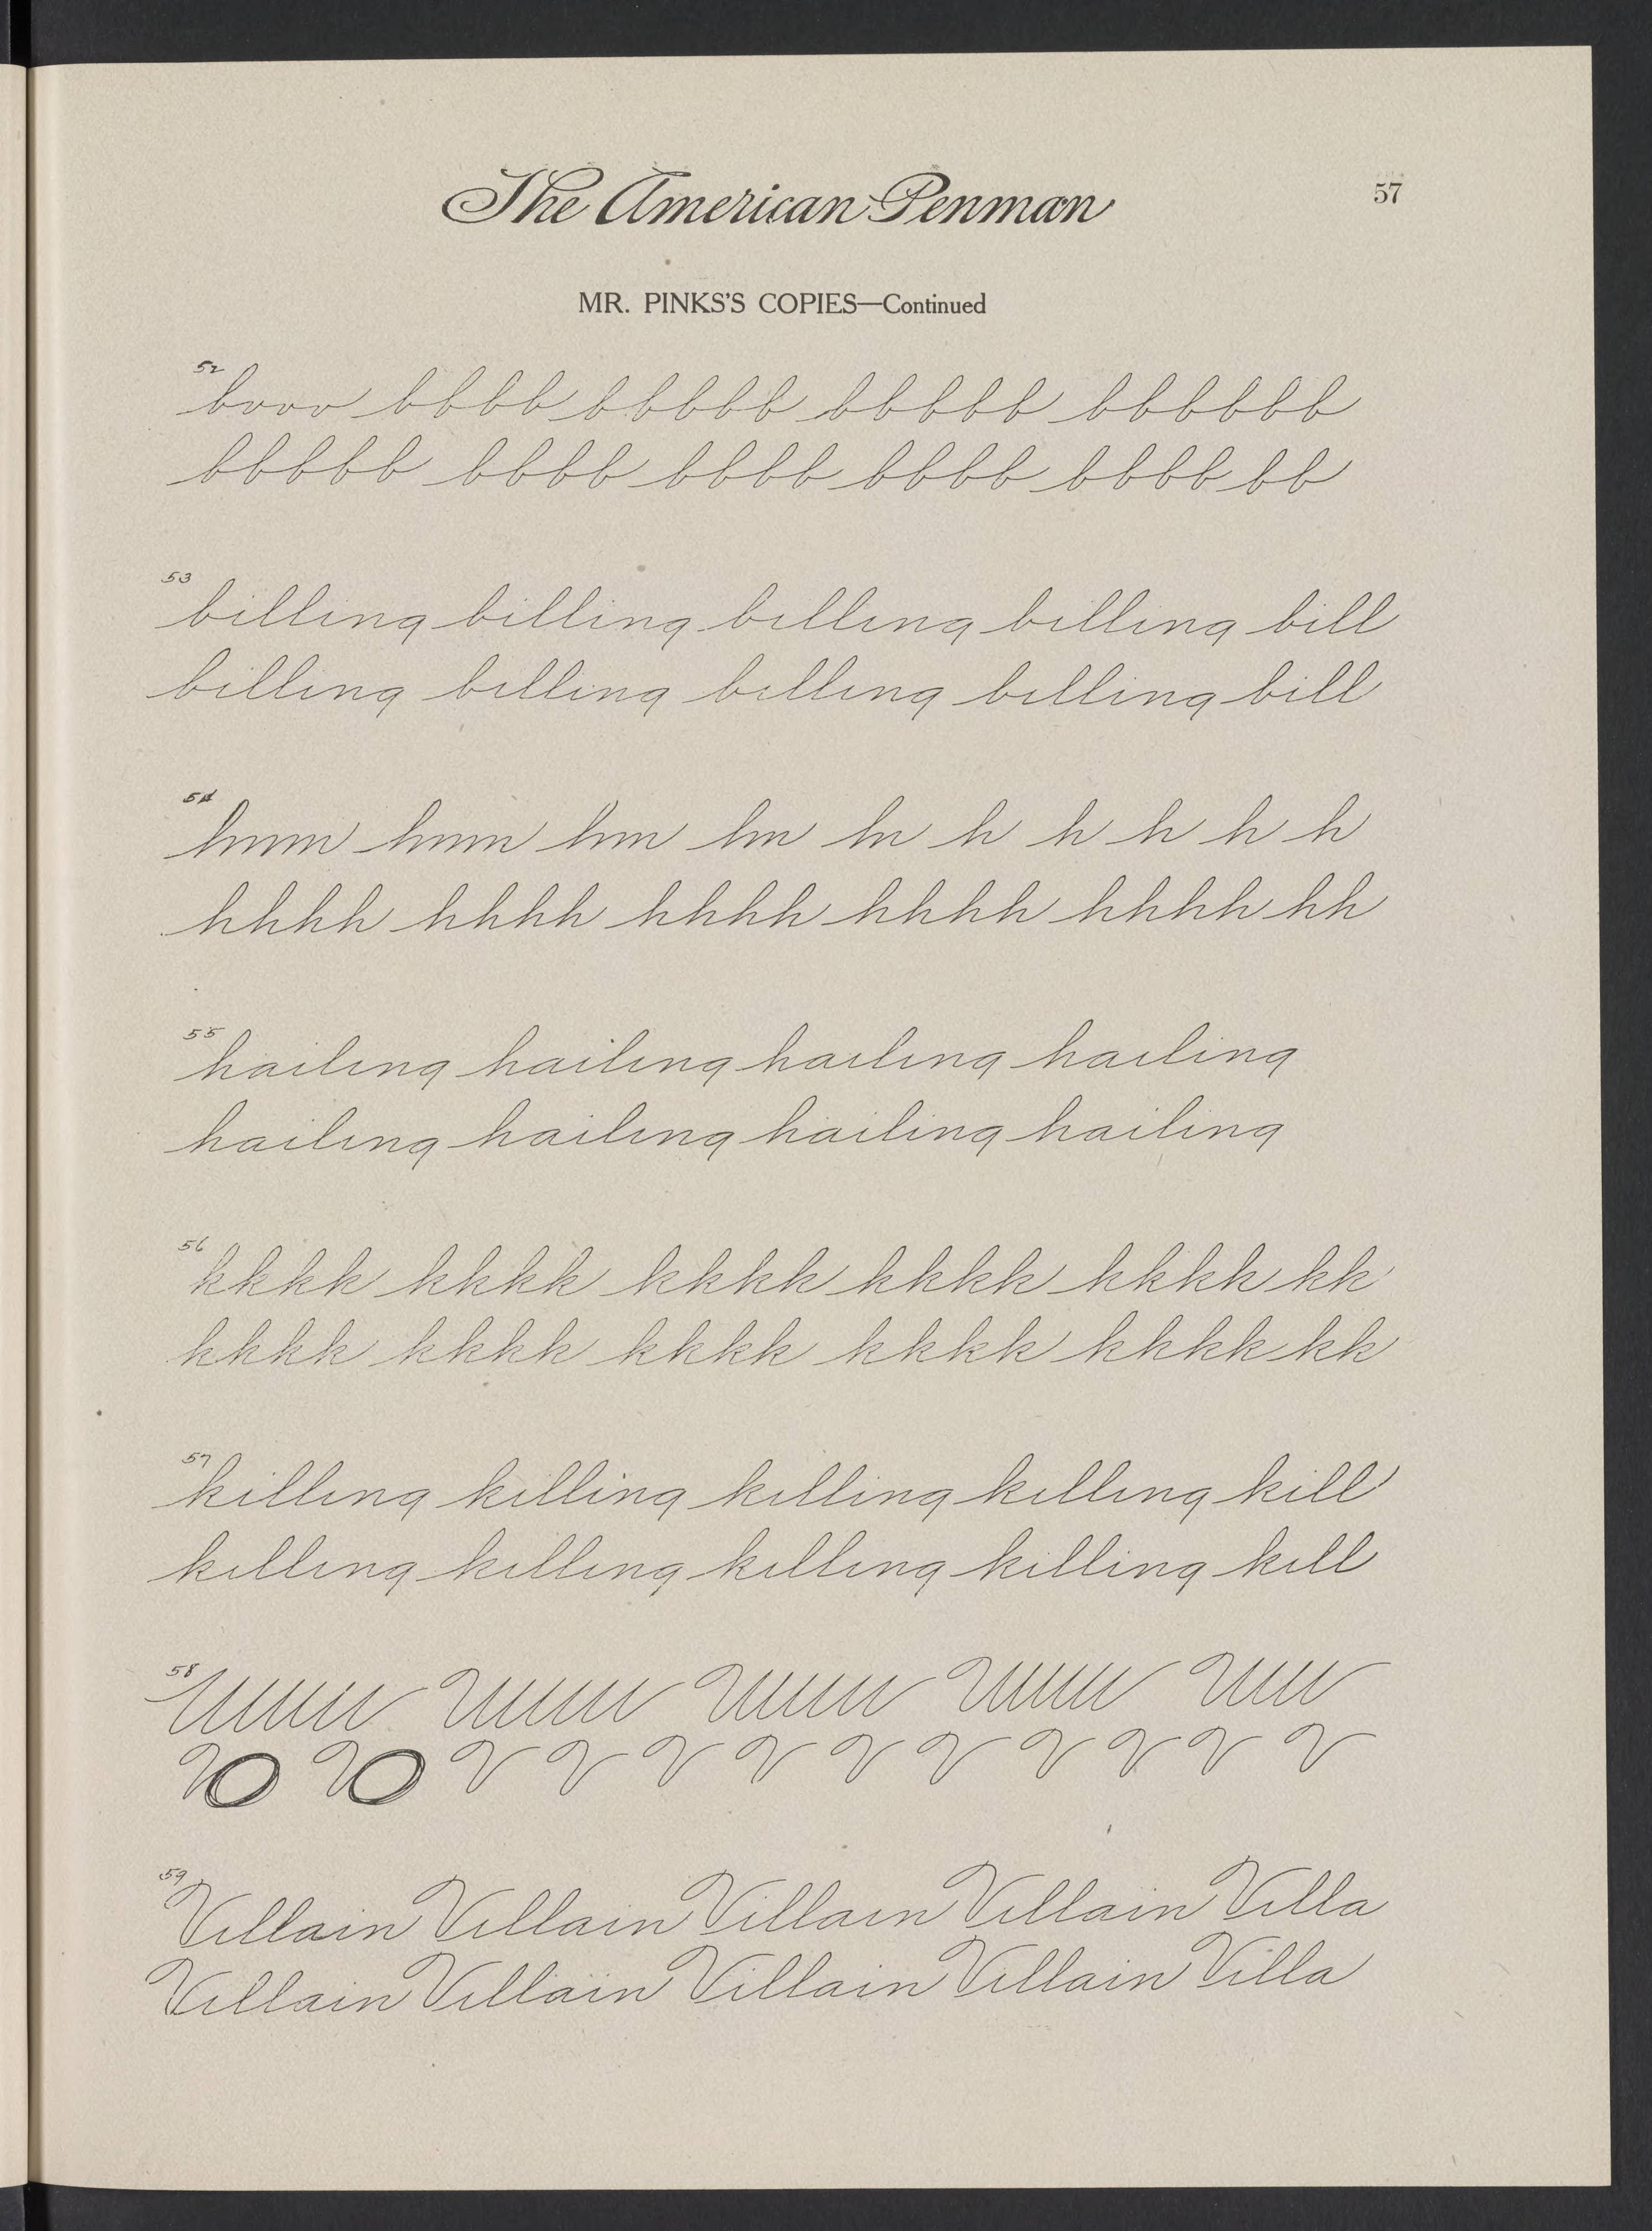 The American Penman
57
MR. PINKS'S COPIES—Continued
52
bvvv bbbb bbbbb bbbbb bbbbbb
bbbbb bbbb bbbb bbbb bbbb bb
53
billing billing billing billing bill
billing billing billing billing bill
54
hmm hmm hm hn hn h h h h h
hhhh hhhh hhhh hhhh hhhh hh
55
hailing hailing hailing hailing
hailing hailing hailing hailing
56
kkkk kkkk kkkk kkkk kkkk kk
kkkk kkkk kkkk kkkk kkkk kk
57
killing killing killing killing kill
killing killing killing killing kill
58
V V V V V V V V V V
59
Villain Villain Villain Villain Villa
Villain Villain Villain Villain Villa